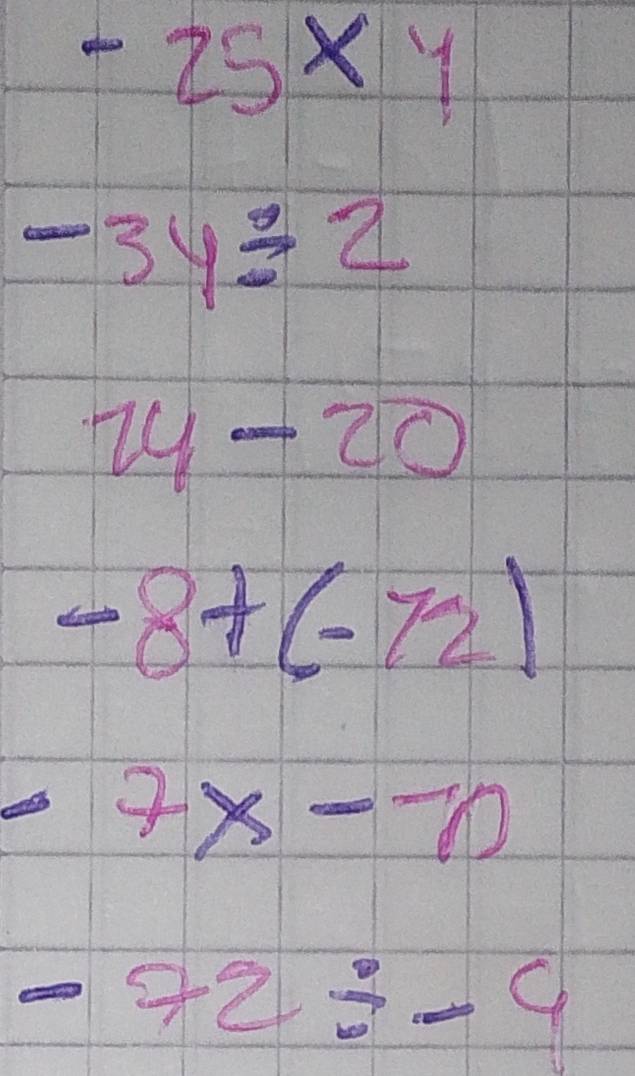 - 25 × 4
- 34 ÷ 2
14 - 20
- 8 + (- 12)
- 7 × - 10
- 72 ÷ - 9